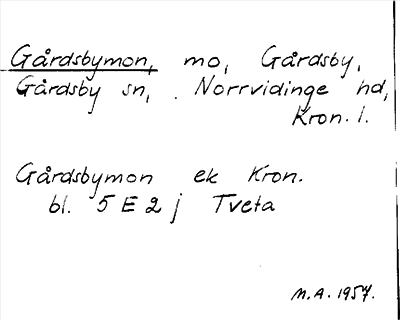 Gårdsbymon, mo, Gårdsby,
Gårdsby sn, Norrvidinge hd,
Kron. l.
Gårdsbymon ek Kron.
bl. 5 E 2 j Tveta
M.A. 1957.